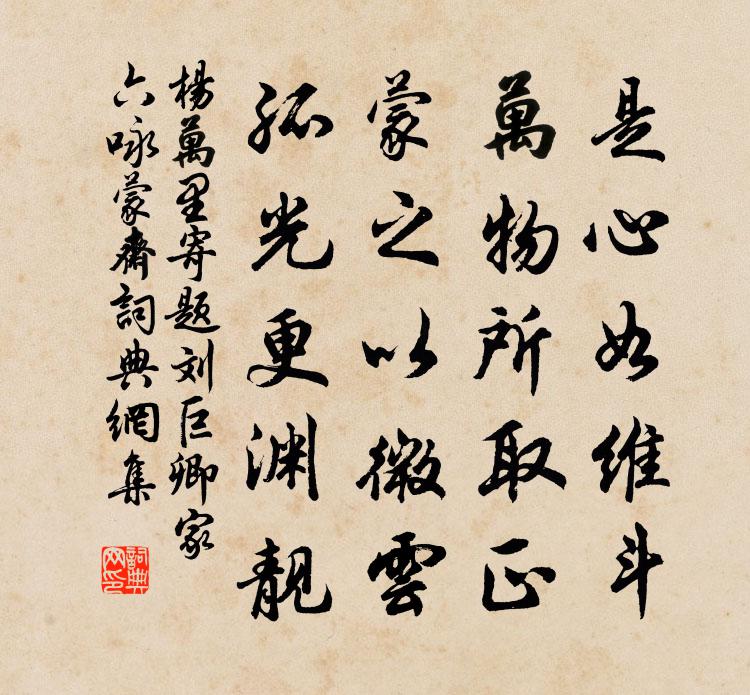 是心如维斗
萬物所取正
蒙之以微雲
孤光更渊靚
楊萬里寄题刘巨卿家
六咏蒙齋詞典網集
詞典
网印